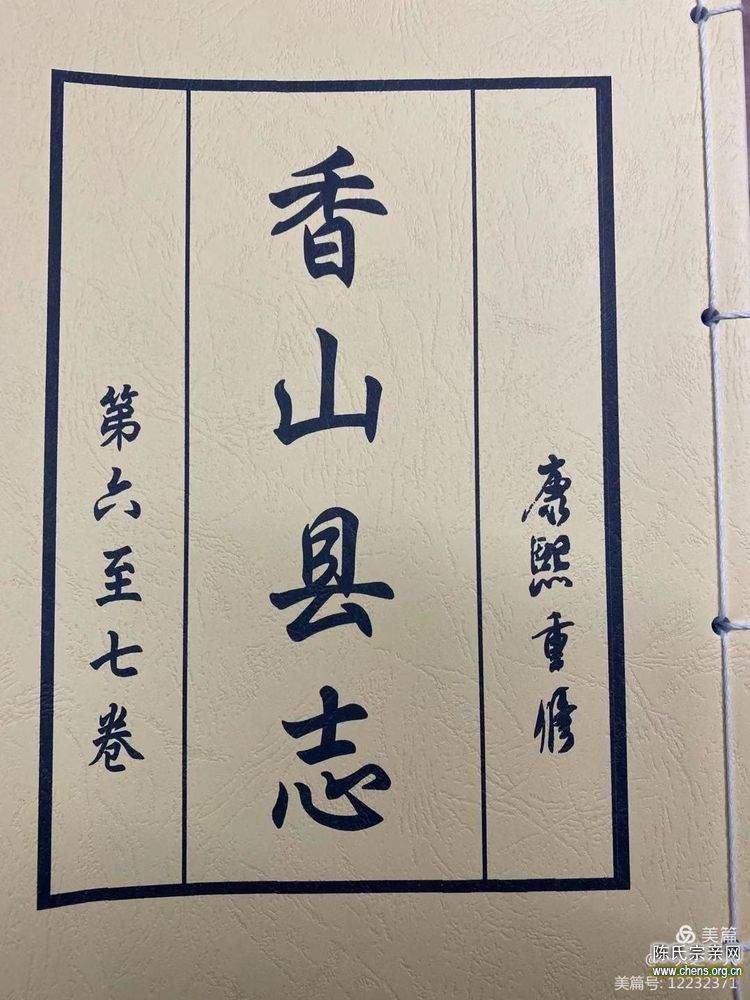 康熙重修
香山县志
第六至七卷
美篇
陈氏宗亲网
www.chens.org.cn
美篇号: 12232371